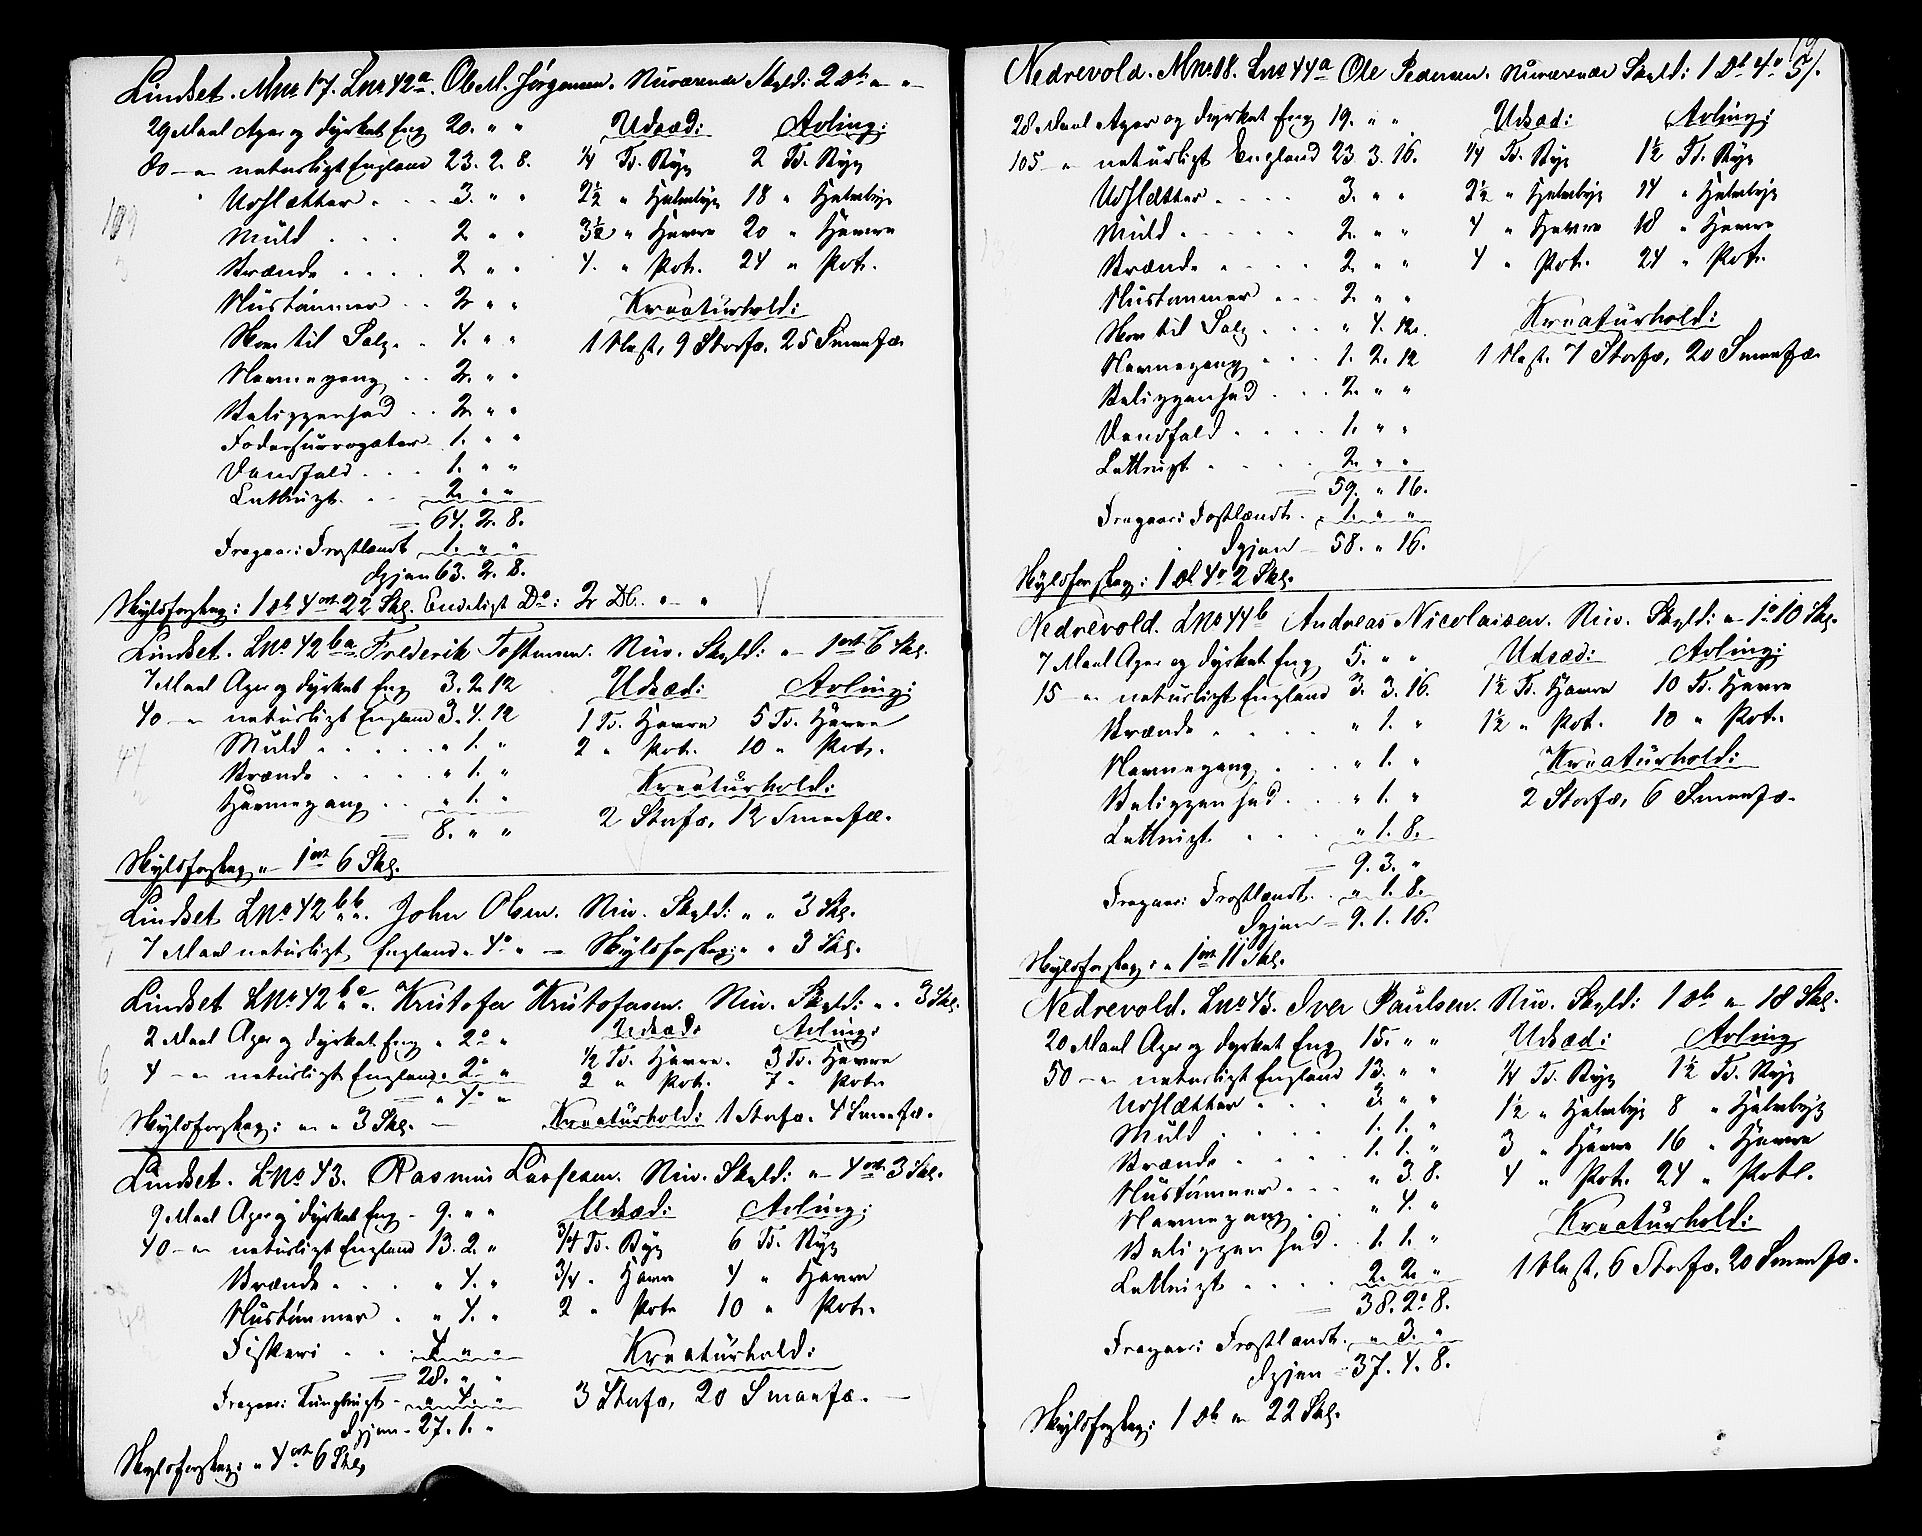 Lindset. Mno 17. Lno 42a. Ole M. Jørgensen. Nuværende Skyld: 2 Dlr „ „
29 Maal Ager og dyrket Eng 20. „ „ Udsæd: Avling:
80 — „ naturligt England 23. 2. 8. ¼ Td. Byg 2 Td. Byg
Udslætter . . . 3. „ „ 2½ „ Halvbyg 18 „ Halvbyg
Muld . . . 2 „ „ 3½ „ Havre 20 „ Havre
Brænde . . . . 2 „ „ 4. „ Pot. 24 „ Pot.
Hustømmer . . 2 „ „ Kreaturhold:
Nær til Salg . . 4. „ „ 1 Hest, 9 Storfæ, 25 Smaafæ.
Havnegang . . 2. „ „
Beliggenhed . . 2. „ „
Fodersurrogater . 1. „ „
Vandfald . . . 1. „ „
Letbrugt . . 2 „ „
= 64. 2. 8.
Fragaar: Frostlændt 1. „ „
Igjen 63. 2. 8.
Skyldforslag: 1 Dlr 4 ort 22 Skg. Endeligt Do: 2 Dlr. „ „
Lindset. Lno 42 ba Frederik Tostensen. Nuv. Skyld: „ 1 ort 6 Skg.
7 Maal Ager og dyrket Eng 3. 2. 12 Udsæd: Avling:
40 — „ naturligt England 3. 4. 12 1 Td. Havre 5 Td. Havre
Muld . . . . . „ 1. „ 2 „ Pot. 10 „ Pot.
Brænde . . . . „ 1. „ Kreaturhold:
Havnegang . . „ 1. „ 2 Storfæ, 12 Smaafæ.
= 8. „ „
Skyldforslag „ 1 ort 6 Skg.
Lindset Lno 42 bb. John Olsen. Nuv. Skyld: „ „ 3 Skg.
7 Maal naturligt England „ 4 „ — Skyldforslag: „ „ 3 Skg.
Lindset Lno 42 bc. Kristofer Kristofersen. Nuv. Skyld: „ „ 3 Skg.
2 Maal Ager og dyrket Eng „ 2 „ Udsæd: Avling:
4 — „ naturligt England „ 2 „ ½ Td. Havre. 3 Td. Havre
= „ 4 „ 2 „ Pot. 7 „ Pot.
Skyldforslag: „ „ 3 Skg. — Kreaturhold: 1 Storfæ. 4 Smaafæ.
Lindset. Lno 43. Rasmus Nuv. Skyld: „ 4 ort 3 Skg.
9 Maal Ager og dyrket Eng - 9. „ „ Udsæd: Avling:
40 — „ naturligt England 13. 2. „ ¾ Td. Byg 6 Td. Byg
Brænde . . . „ 4. „ ¾ „ Havre 4 „ Havre
Hustømmer . „ 4. „ 2 „ Pot. 10 „ Pot.
Fiskeri . . . 4 „ „ Kreaturhold:
= 28. „ „ 3 Storfæ, 20 Smaafæ. —
Fragaar: Tungbrugt - „ 4. „
Igjen - 27. 1. „
Skyldforslag: „ 4 ort 6 Skg.
Nedrevold. Mno 18. Lno 44a Ole Pedersen. Nuværende Skyld: 1 Dlr 4 o 5 /.
28 Maal Ager og dyrket Eng 19. „ „ Udsæd: Avling:
105 — „ naturligt England 23. 3. 16. ¼ Td. Byg 1½ Td. Byg
Udslætter . . . . 3. „ „ 2½ „ Halvbyg 14 „ Halvbyg
Muld . . . . . 2. „ „ 4 „ Havre 18 „ Havre
Brænde . . . . 2. „ „ 4 „ Pot. 24 „ Pot.
Hustømmer . . . 2. „ „ Kreaturhold:
Nær til Salg . . . „ 4. 12. 1 Hest. 7 Storfæ, 20 Smaafæ.
Havnegang . . . 1. 2. 12
Beliggenhed . . . 2. „ „
Vandfald . . . . 1. „ „
Letbrugt . . . . 2. „ „
= 59. „ 16.
Fragaar: Frostlændt . 1. „ „
Igjen - 58. „ 16.
Skyldforslag: 1 Dlr 4 o 2 Skg.
Nedrevold. Lno 44b Andreas Nicolaisen. Nuv. Skyld: „ 1 o 10 Skg.
7 Maal Ager og dyrket Eng 5. „ „ Udsæd: Avling:
15 — „ naturligt England 3. 3. 16. 1½ Td. Havre 10 Td. Havre
Brænde . . . . „ 1. „ 1½ „ Pot. 10 „ Pot.
Havnegang . . . „ 1. „ Kreaturhold:
Beliggenhed . . . „ 1. „ 2 Storfæ, 6 Smaafæ.
Letbrugt . . . „ 1. 8.
= 9. 3. „
Fragaar: Frostlændt . „ 1. 8.
Igjen = 9. 1. 16.
Skyldforslag: „ 1 ort 11 Skg.
Nedrevold. Lno 45. Iver Paulsen. Nuv. Skyld: 1 Dlr „ 18 Skg.
20 Maal Ager og dyrket Eng 15. „ „ Udsæd: Avling
50 — „ naturligt England 13. „ „ ¼ Td. Byg 1½ Td. Byg
Udslætter . . . 2. „ „ 1½ „ Halvbyg 8 „ Halvbyg
Muld . . . . . 1. 1. „ 3 „ Havre 16 „ Havre
Brænde . . . . 1. 1. „ 4 „ Pot. 24 „ Pot.
Hustømmer . . . „ 3. 8. Kreaturhold:
Havnegang . . „ 4. „ 1 Hest, 6 Storfæ, 20 Smaafæ.
Beliggenhed . 1. 1. „
Letbrugt . . . . 2. 2. „
= 38. 2. 8.
Fragaar: Frostlændt . „ 3. „
Igjen = 37. 4. 8.
Skyldforslag: 1 Dlr „ 22 Skg.